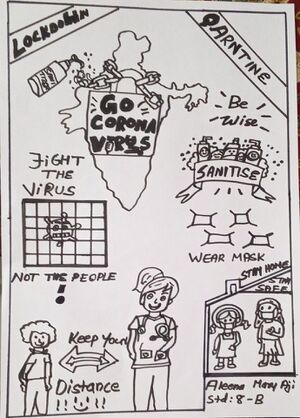 LOCKDOWN
QARNTINE
GO
CORONA
VIRUS
Be
Wise
SANITISE
FIGHT
THE
VIRUS
WEAR MASK
NOT THE PEOPLE
!
STAY HOME
STAY
SAFE
Keep Your
Distance
Aleena Mary Aji
Std:8-B